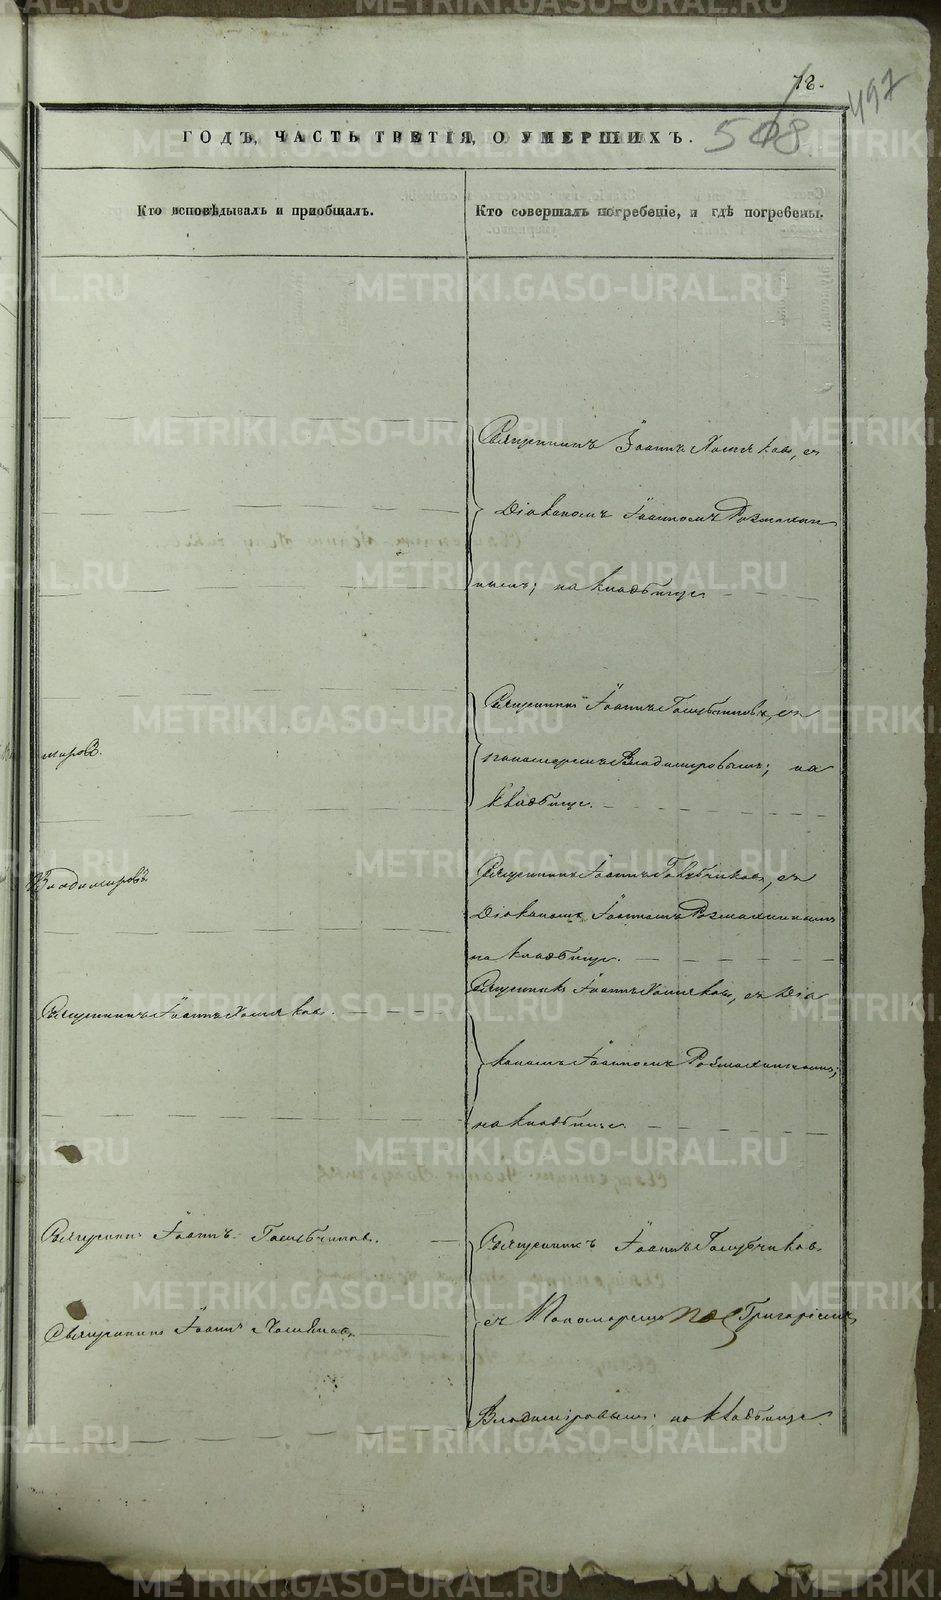 78.
497
508
ГОДЪ, ЧАСТЬ ТРЕТІЯ, О УМЕРШИХЪ.
Кто исповѣдывалъ и пріобщалъ.
Кто совершалъ погребеніе, и гдѣ погребены.
Священникъ Іоаннъ Хомяковъ, съ
Діакономъ Іоанномъ Розмахни
нымъ; на кладбищѣ
Священникъ Іоаннъ Голубчиковъ, съ
пономаремъ Владимировымъ; на
кладбищѣ.
мировъ.
Владимировъ
Священникъ Іоаннъ Голубчиковъ, съ
Діакономъ Іоанномъ Розмахнинымъ
на кладбищѣ.
Священникъ Іоаннъ Хомяковъ.
Священникъ Іоаннъ Хомяковъ, съ Діа
кономъ Іоанномъ Розмахнинымъ;
на кладбищѣ
Священникъ Іоаннъ Голубчиковъ.
Священникъ Іоаннъ Хомяковъ
Священникъ Іоаннъ Голубчиковъ
съ Пономаремъ Григоріемъ
Владиміровымъ. на кладбищѣ.
METRIKI.GASO-URAL.RU